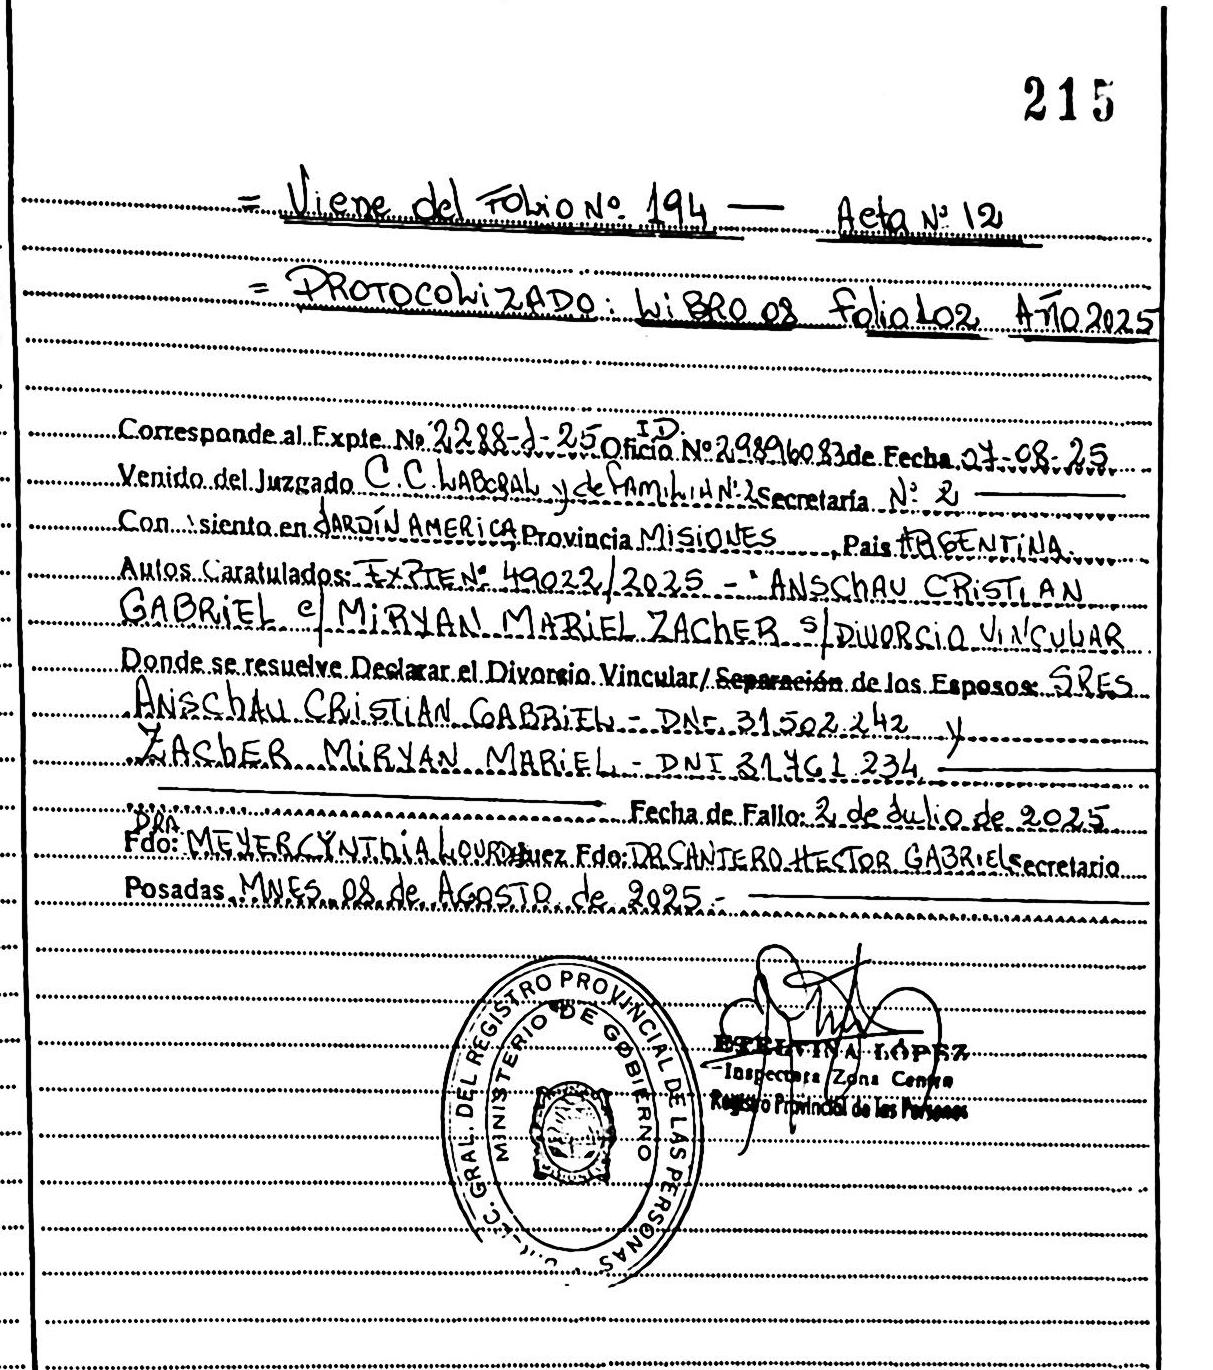 215
= Viene del Folio Nº. 194 — Acta Nº 12
= PROTOCOLIZADO: LiBRO 08 folio 102 AÑO 2025
Corresponde al Expte. Nº 2288-J-25 Oficio I.D. Nº 29896083 de Fecha 07-08-25
Venido del Juzgado C.C. LABORAL y de FAMiLiA Nº 2 Secretaría Nº 2
Con siento en JARDÍN AMERiCA Provincia MiSiONES, Pais ARGENTiNA.
Autos Caratulados: EXPTE Nº 49022/2025 - "ANSChAU CRiSTiAN
GABRiEL c/ MiRYAN MARiEL ZAChER s/ DiVORCiO ViNCULAR
Donde se resuelve Declarar el Divorcio Vincular/ Separación de los Esposos: SRES
ANSChAU CRiSTiAN GABRiEL - DNI. 31.502.242 y
ZAChER MiRYAN MARiEL - DNI 31 761 234
Fecha de Fallo: 2 de Julio de 2025
Fdo: DRA MEYER CYNThiA LOURD Juez Fdo: DR CANTERO HECTOR GABRiEL Secretario
Posadas, MNES 08 de AGOSTO de 2025.-
GRAL. DEL REGISTRO PROVINCIAL DE LAS PERSONAS
MINISTERIO DE GOBIERNO
ETELVINA LÓPEZ
Inspectora Zona Centro
Registro Provincial de las Personas